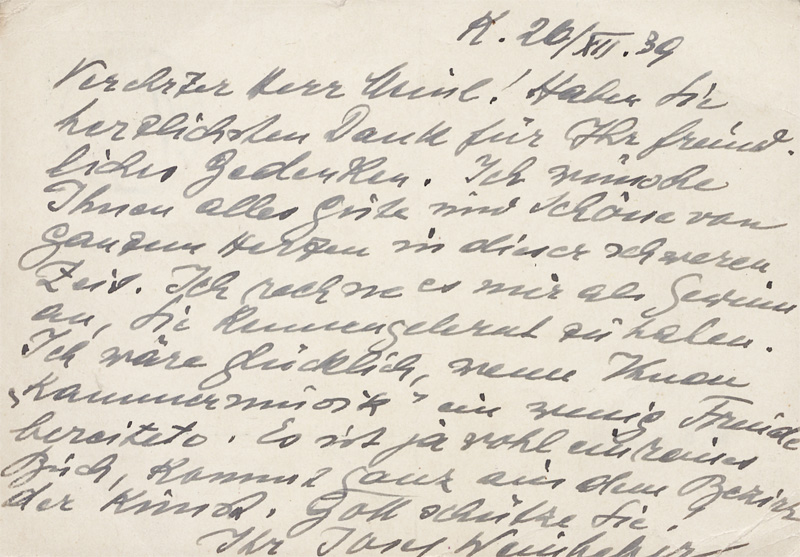 K. 26/XII. 39
Verehrter Herr Meisl! Haben Sie
herzlichsten Dank für Ihr freund-
liches Gedenken. Ich wünsche
Ihnen alles Gute und Schöne von
ganzem Herzen in dieser schweren
Zeit. Ich rechne es mir als Gewinn
an, Sie kennengelernt zu haben.
Ich wäre glücklich, wenn Ihnen
„Kammermusik" ein wenig Freude
bereitete. Es ist ja wohl ein reines
Buch, kommt ganz aus dem Bezirk
der Kunst. Gott schütze Sie!
Ihr Josef Weinheber